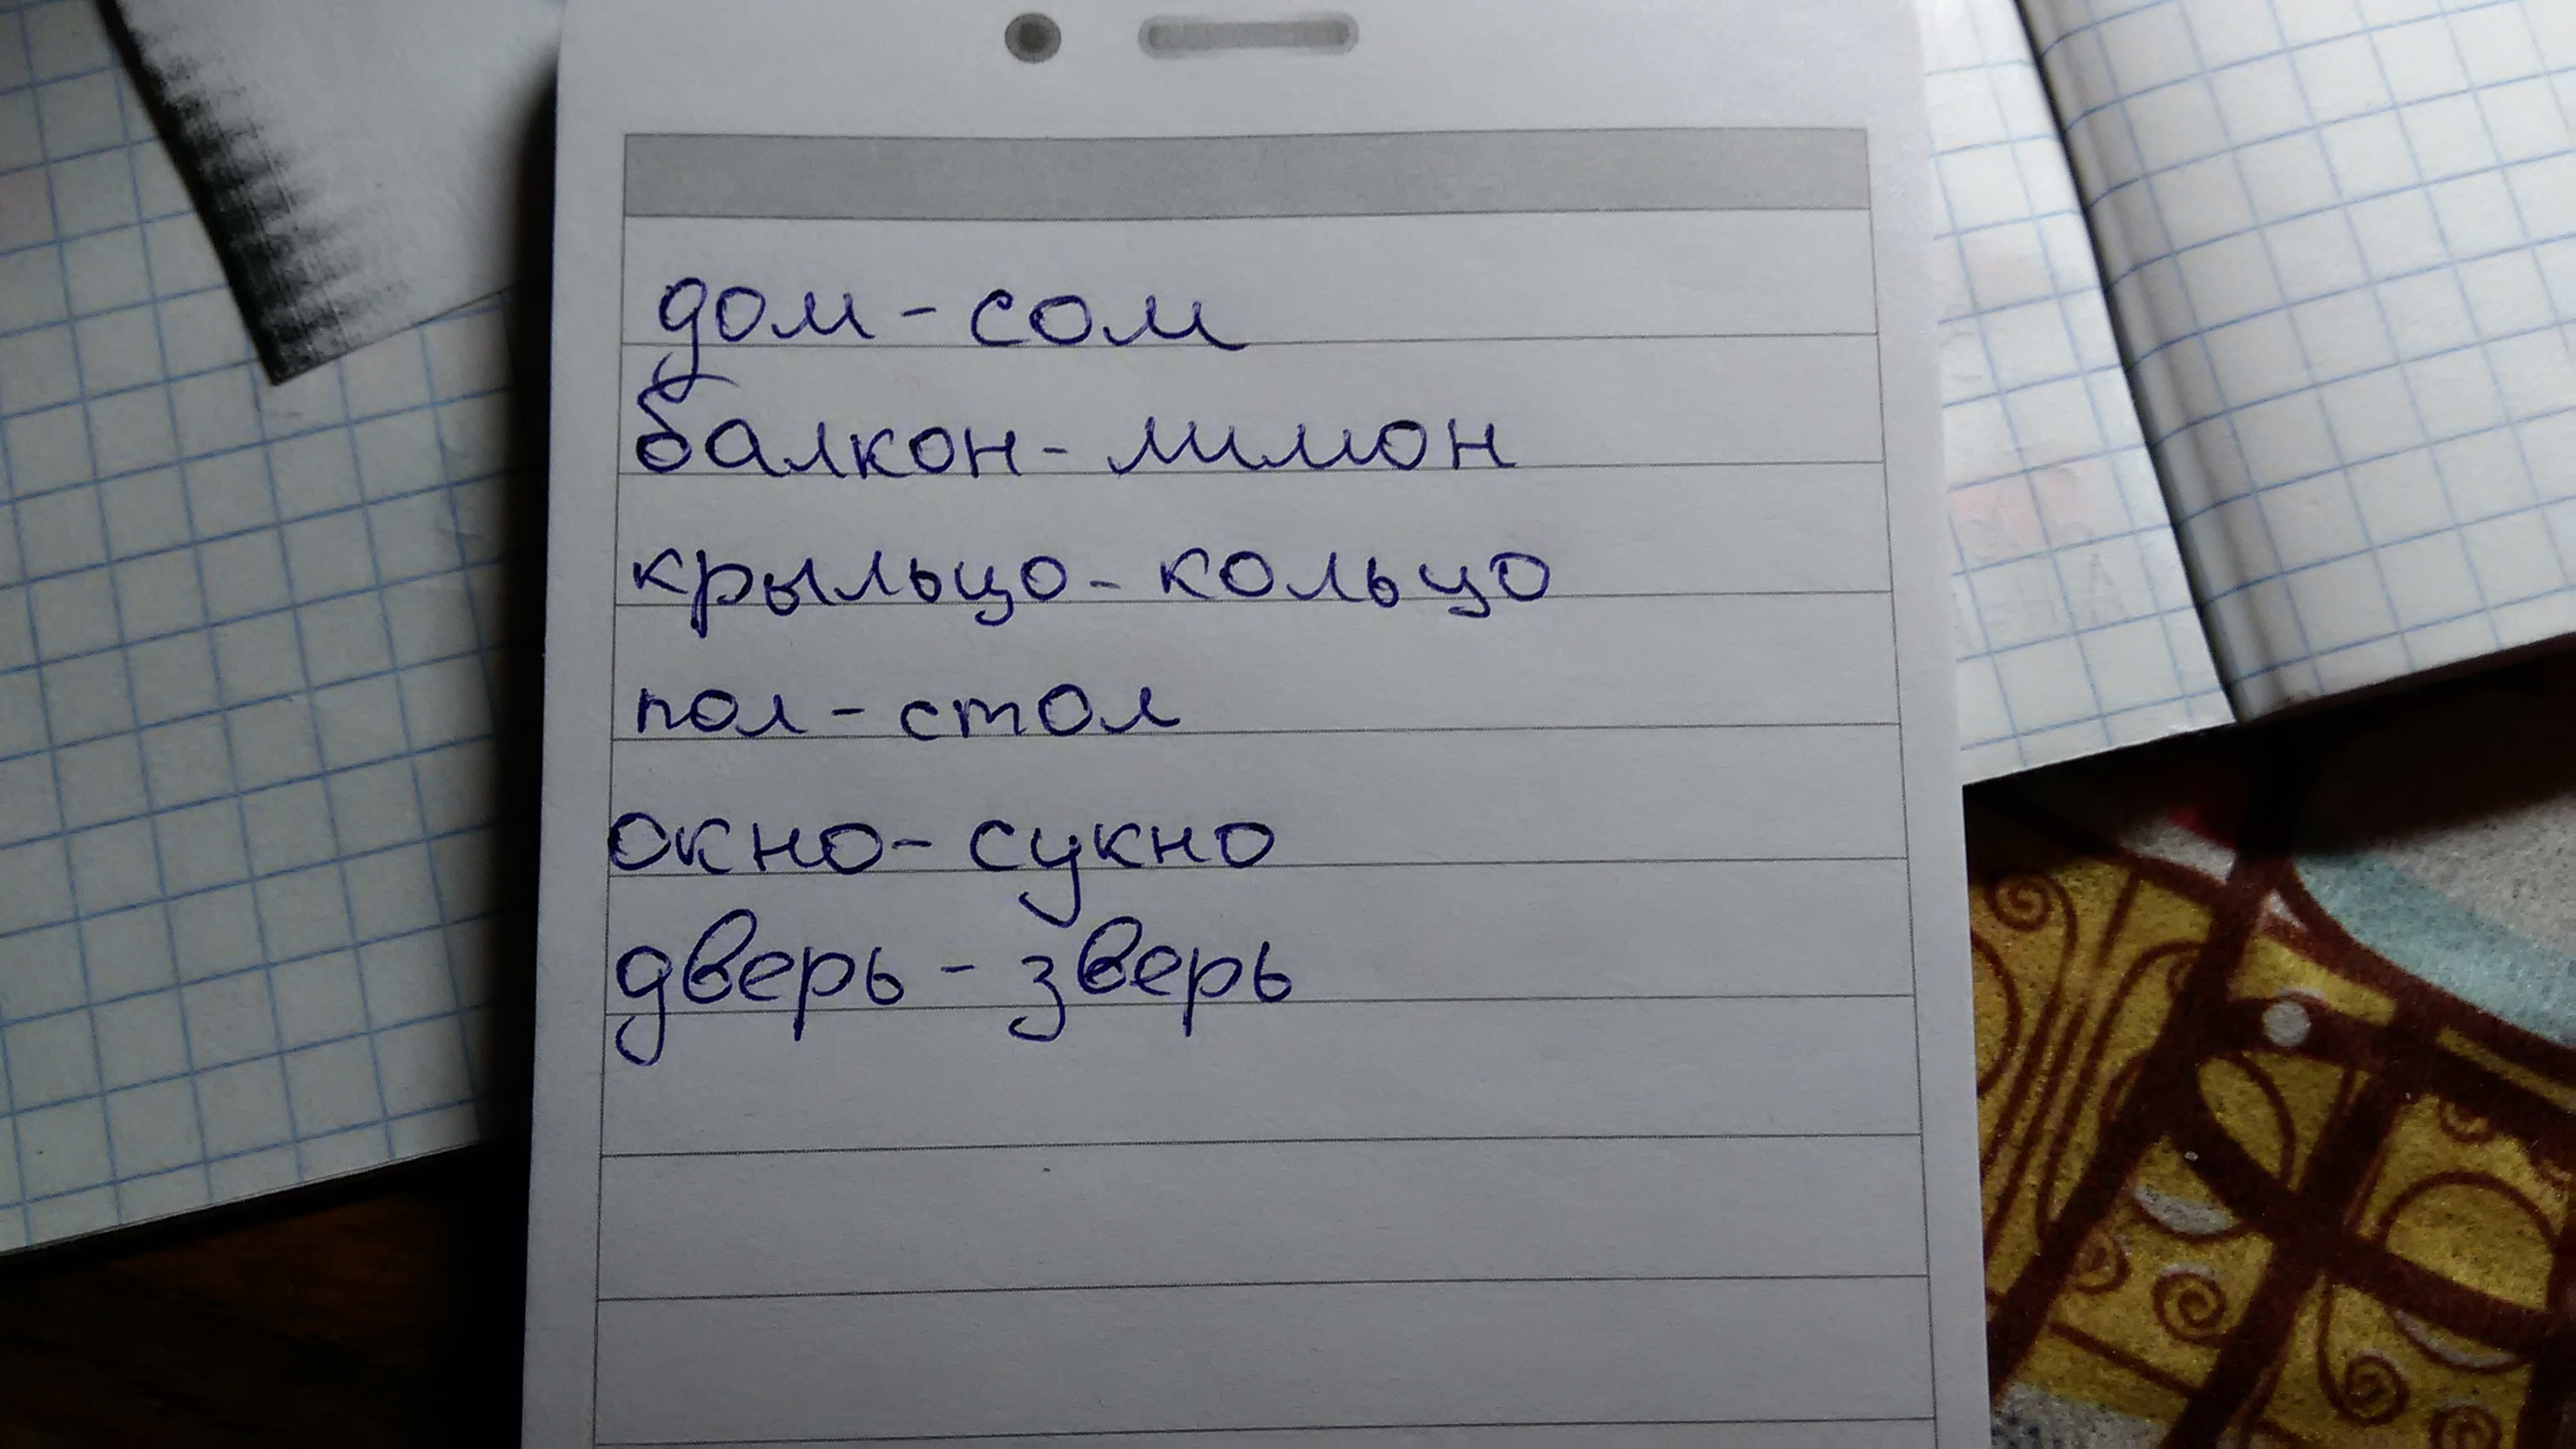 дом - сом
балкон - лимон
крыльцо - кольцо
пол - стол
окно - сукно
дверь - зверь